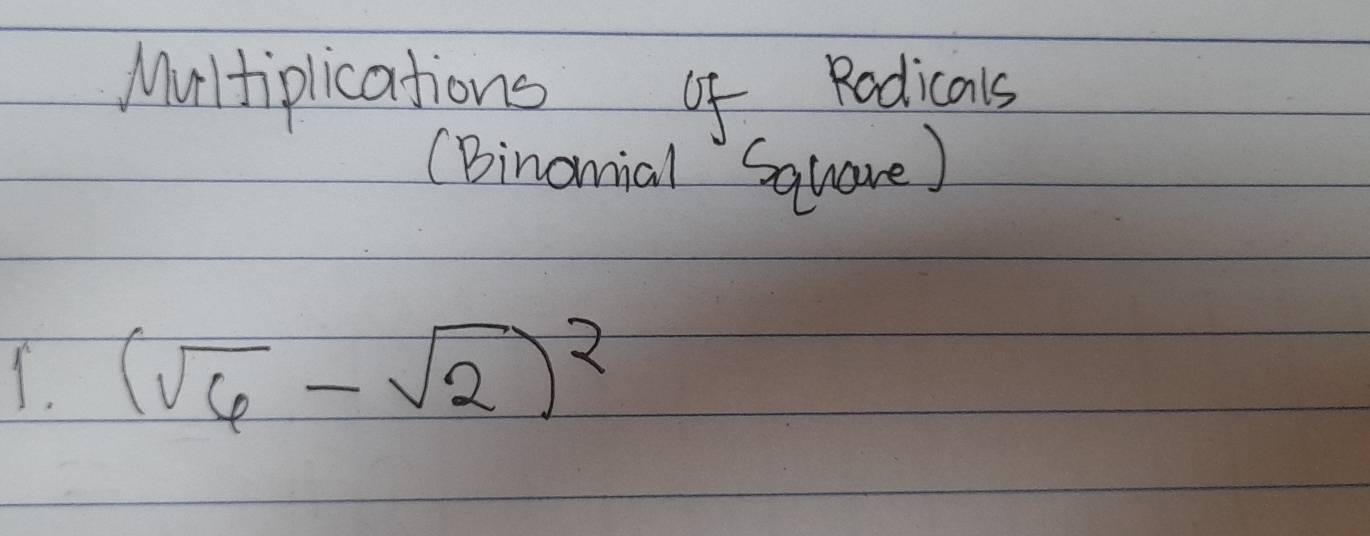 Multiplications of Radicals
(Binomial Square)
1. (√6 - √2)²